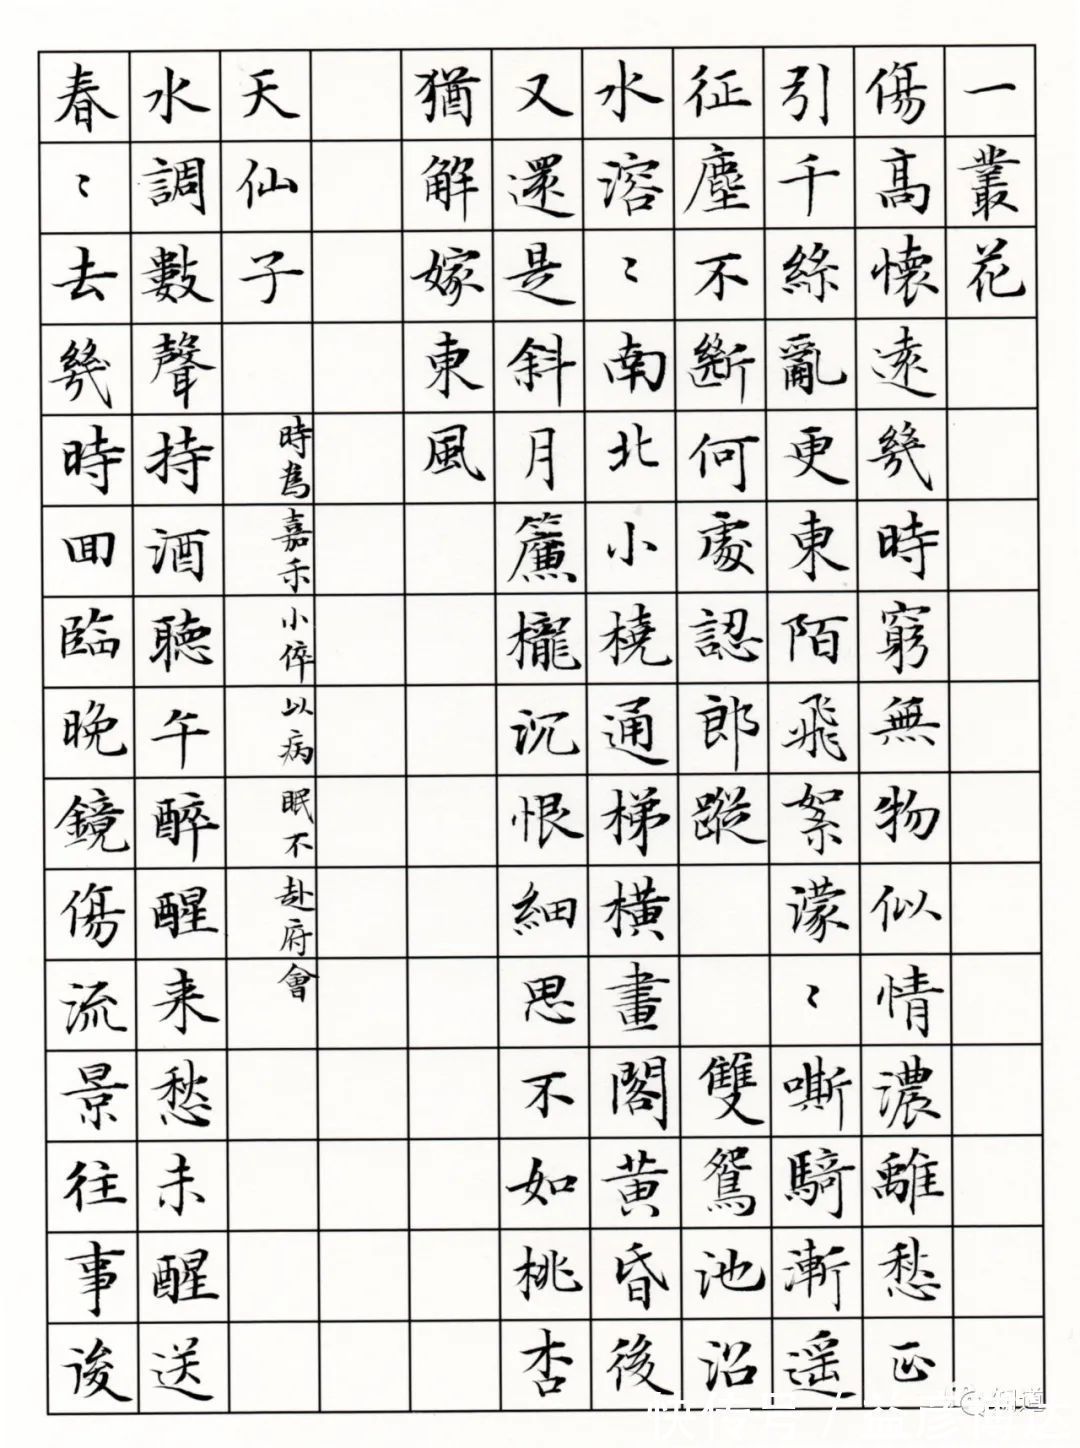 一叢花
傷高懷遠幾時窮無物似情濃離愁正
引千絲亂更東陌飛絮濛〻嘶騎漸遥
征塵不斷何處認郎蹤 雙鴛池沼
水溶〻南北小橈通梯橫畫閣黃昏後
又還是斜月簾櫳沉恨細思不如桃杏
猶解嫁東風
天仙子 時為嘉禾小倅以病眠不赴府會
水調數聲持酒聽午醉醒来愁未醒送
春〻去幾時回臨晚鏡傷流景往事後